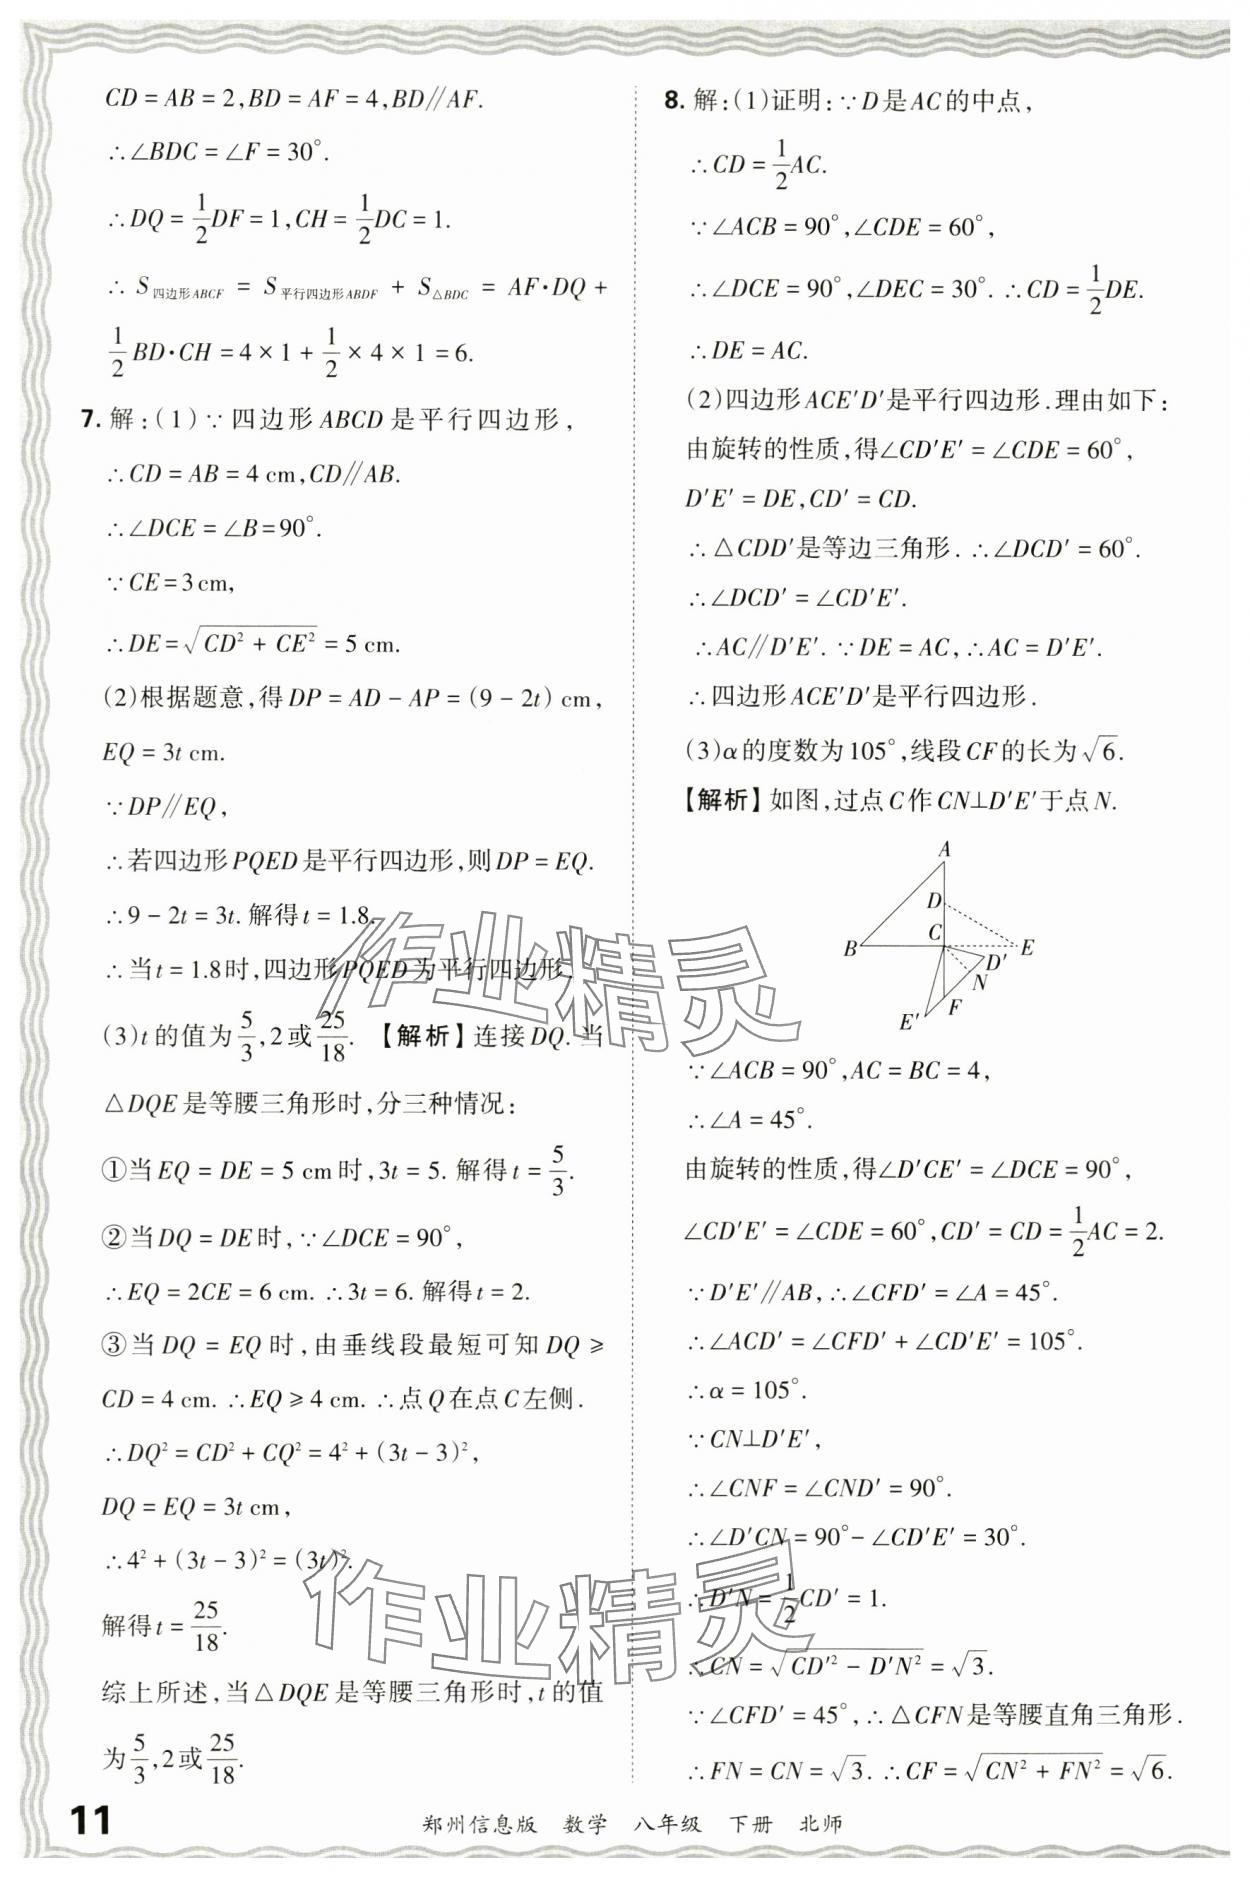 CD=AB=2,BD=AF=4,BD∥AF.
∴∠BDC=∠F=30°.
∴DQ=1/2DF=1,CH=1/2DC=1.
∴ S四边形ABCF = S平行四边形ABDF + S△BDC = AF·DQ +
1/2BD·CH=4×1+1/2×4×1=6.
7. 解:(1)∵四边形ABCD是平行四边形,
∴CD=AB=4 cm,CD∥AB.
∴∠DCE=∠B=90°.
∵CE=3 cm,
∴DE=√(CD²+CE²)=5 cm.
(2)根据题意,得DP=AD-AP=(9-2t) cm,
EQ=3t cm.
∵DP∥EQ,
∴若四边形PQED是平行四边形,则DP=EQ.
∴9-2t=3t.解得t=1.8.
∴当t=1.8时,四边形PQED为平行四边形.
(3)t的值为5/3,2或25/18. 【解析】连接DQ.当
△DQE是等腰三角形时,分三种情况:
①当EQ=DE=5 cm时,3t=5.解得t=5/3.
②当DQ=DE时,∵∠DCE=90°,
∴EQ=2CE=6 cm.∴3t=6.解得t=2.
③当DQ=EQ时,由垂线段最短可知DQ≥
CD=4 cm.∴EQ≥4 cm.∴点Q在点C左侧.
∴DQ²=CD²+CQ²=4²+(3t-3)²,
DQ=EQ=3t cm,
∴4²+(3t-3)²=(3t)².
解得t=25/18.
综上所述,当△DQE是等腰三角形时,t的值
为5/3,2或25/18.
8. 解:(1)证明:∵D是AC的中点,
∴CD=1/2AC.
∵∠ACB=90°,∠CDE=60°,
∴∠DCE=90°,∠DEC=30°.∴CD=1/2DE.
∴DE=AC.
(2)四边形ACE′D′是平行四边形.理由如下:
由旋转的性质,得∠CD′E′=∠CDE=60°,
D′E′=DE,CD′=CD.
∴△CDD′是等边三角形.∴∠DCD′=60°.
∴∠DCD′=∠CD′E′.
∴AC∥D′E′.∵DE=AC,∴AC=D′E′.
∴四边形ACE′D′是平行四边形.
(3)α的度数为105°,线段CF的长为√6.
【解析】如图,过点C作CN⊥D′E′于点N.
A
D
C
B
E
D′
N
F
E′
∵∠ACB=90°,AC=BC=4,
∴∠A=45°.
由旋转的性质,得∠D′CE′=∠DCE=90°,
∠CD′E′=∠CDE=60°,CD′=CD=1/2AC=2.
∵D′E′∥AB,∴∠CFD′=∠A=45°.
∴∠ACD′=∠CFD′+∠CD′E′=105°.
∴α=105°.
∵CN⊥D′E′,
∴∠CNF=∠CND′=90°.
∴∠D′CN=90°-∠CD′E′=30°.
∴D′N=1/2CD′=1.
∴CN=√(CD′²-D′N²)=√3.
∵∠CFD′=45°,∴△CFN是等腰直角三角形.
∴FN=CN=√3.∴CF=√(CN²+FN²)=√6.
作业精灵
作业精灵
11
郑州信息版 数学 八年级 下册 北师